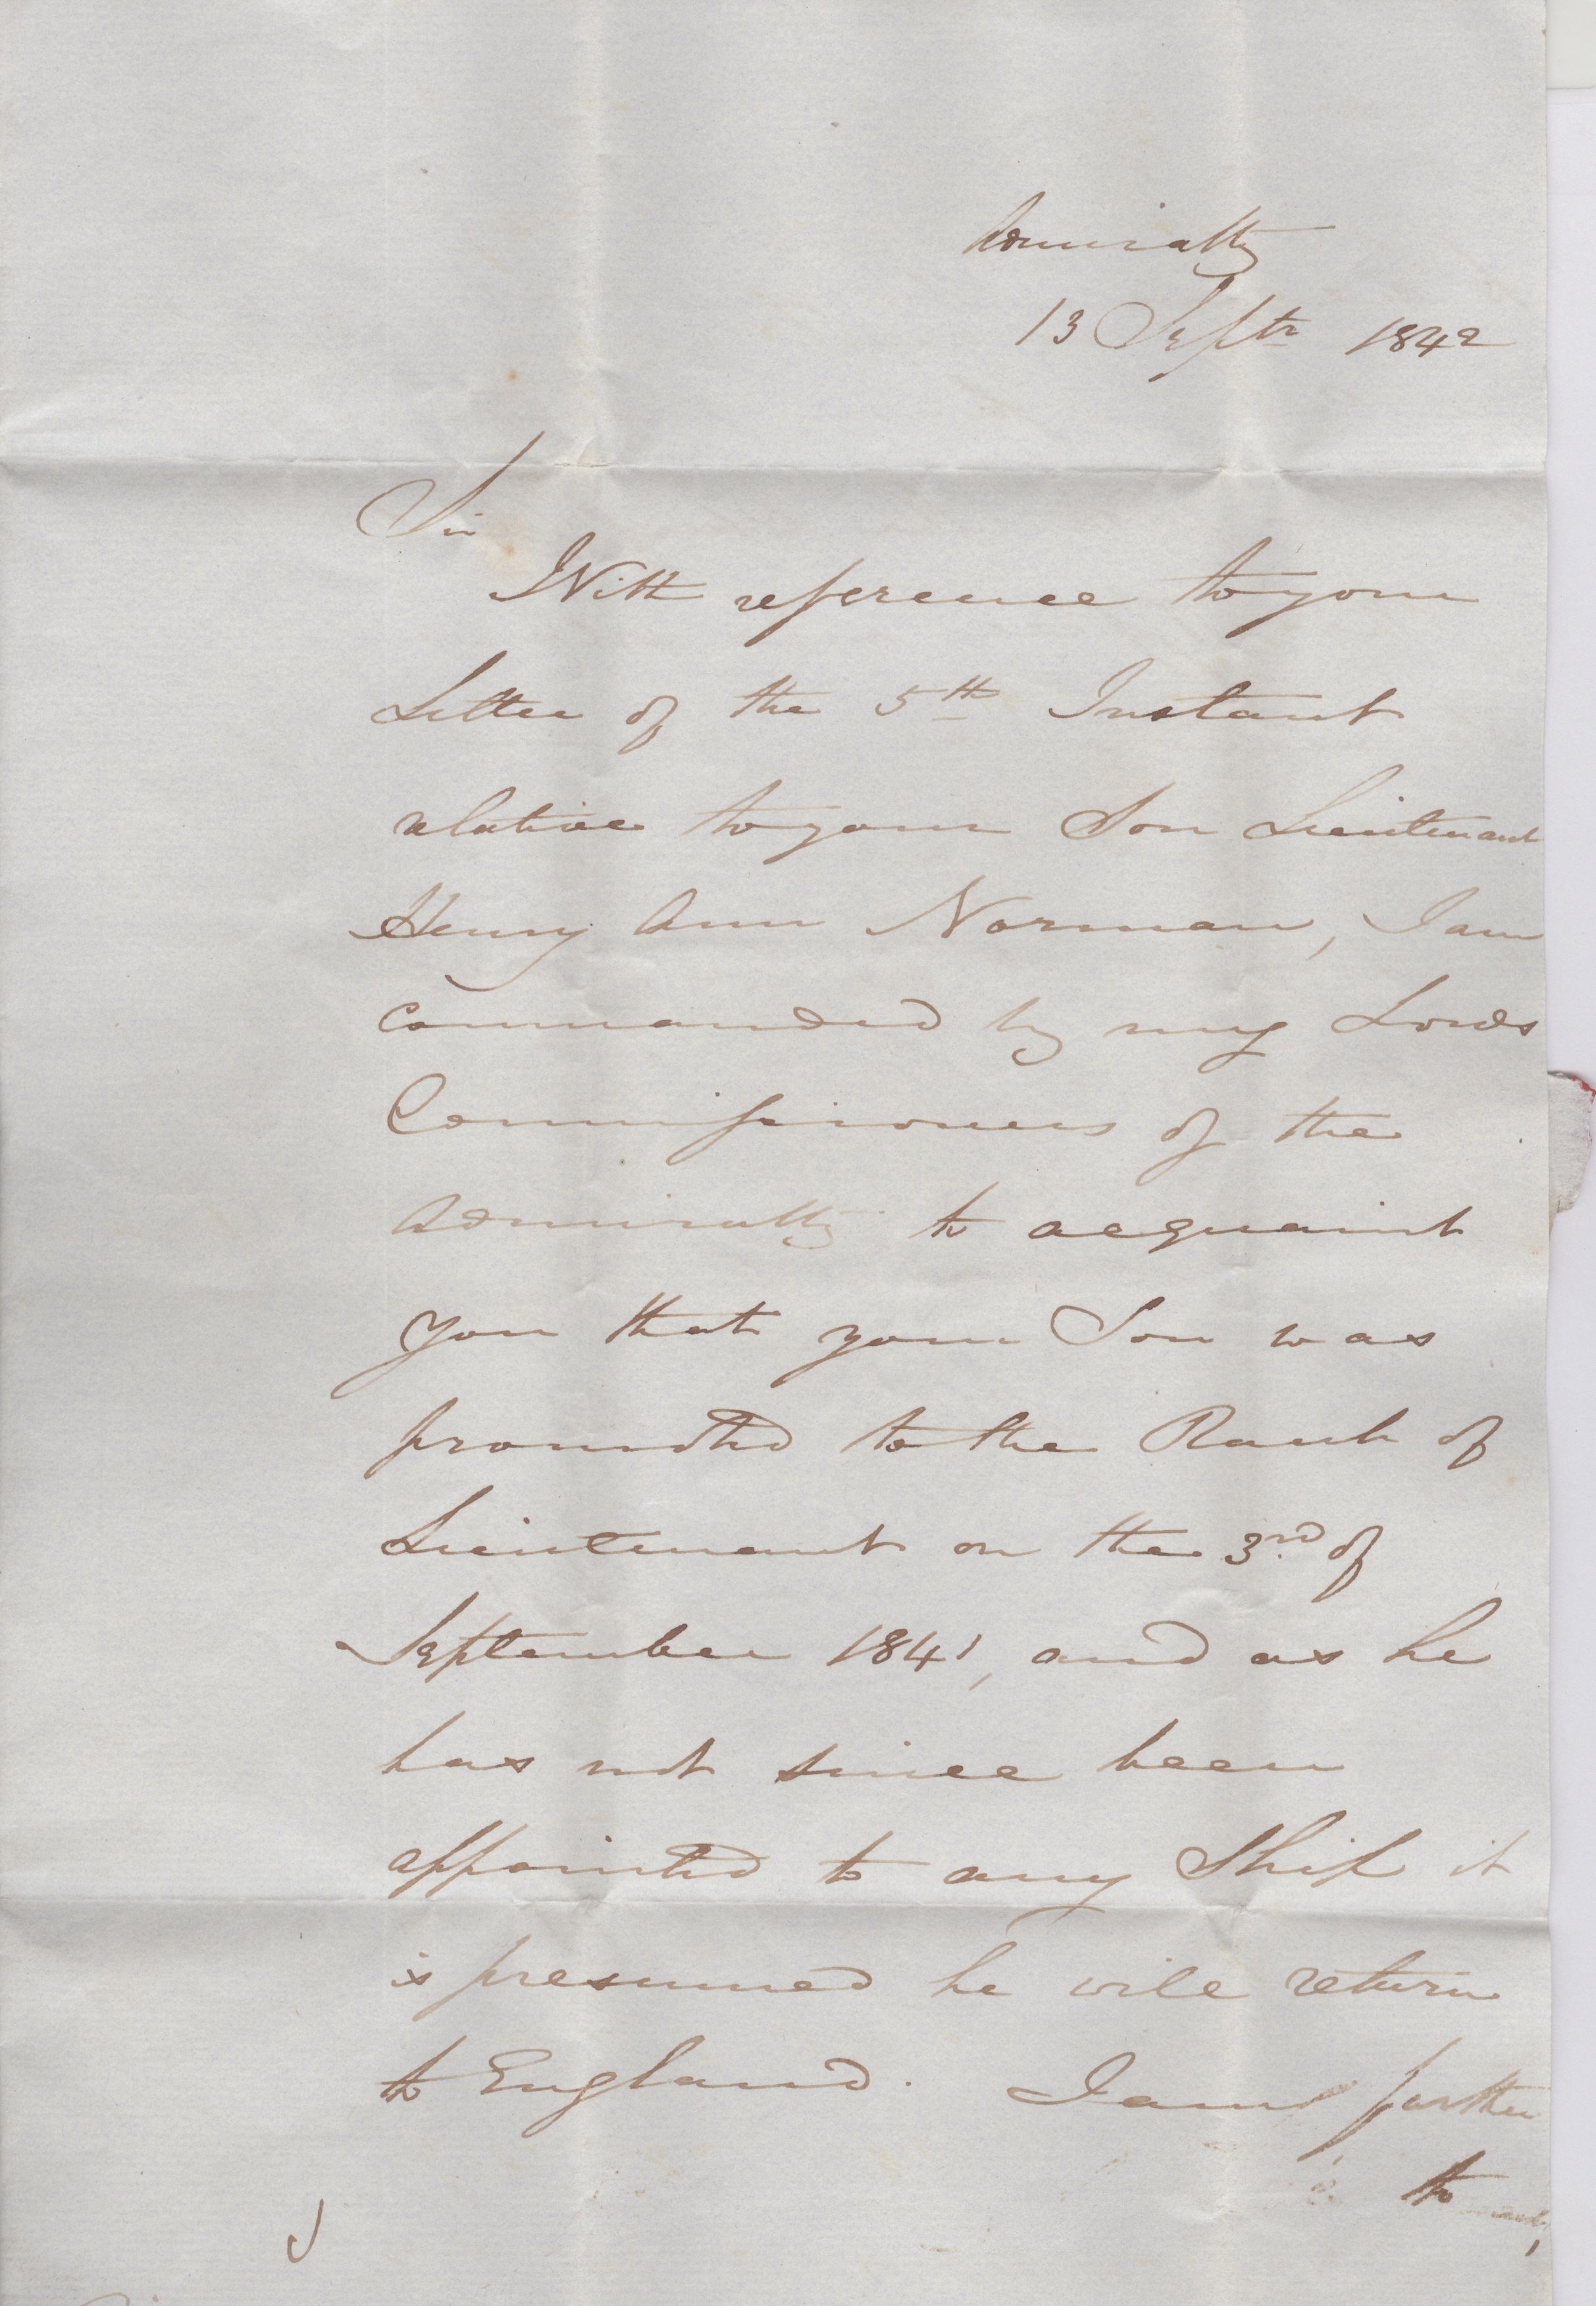 Admiralty
13 Septr 1842
Sir
With reference to your
Letter of the 5th Instant
relative to your Son Lieutenant
Henry Ann Norman, I am
commanded by my Lords
Commissioners of the
Admiralty to acquaint
you that your Son was
promoted to the Rank of
Lieutenant on the 3rd of
September 1841, and as he
has not since been
appointed to any Ship it
is presumed he will return
to England. I am further
to